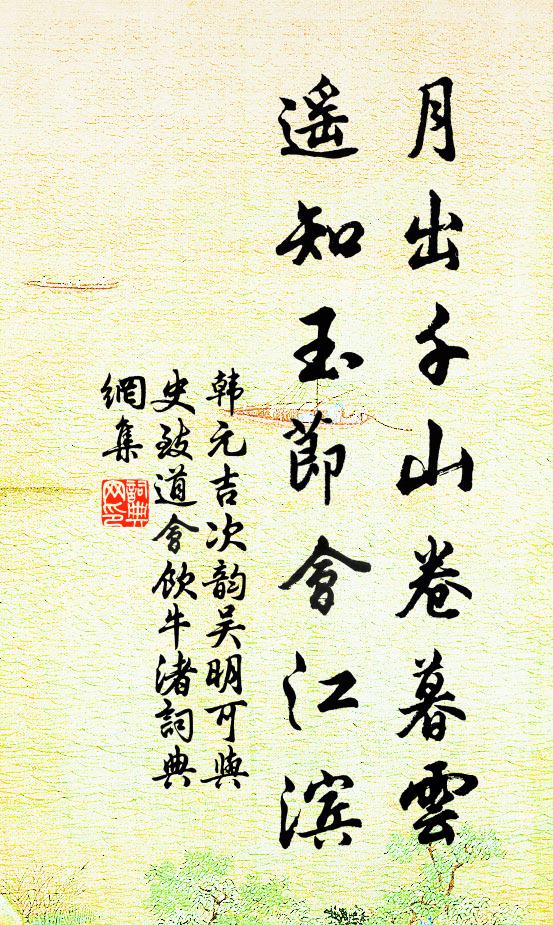 月出千山卷暮雲
遥知玉節會江滨
韩元吉次韵吴明可與
史致道會飲牛渚詞典
網集
詞典網印